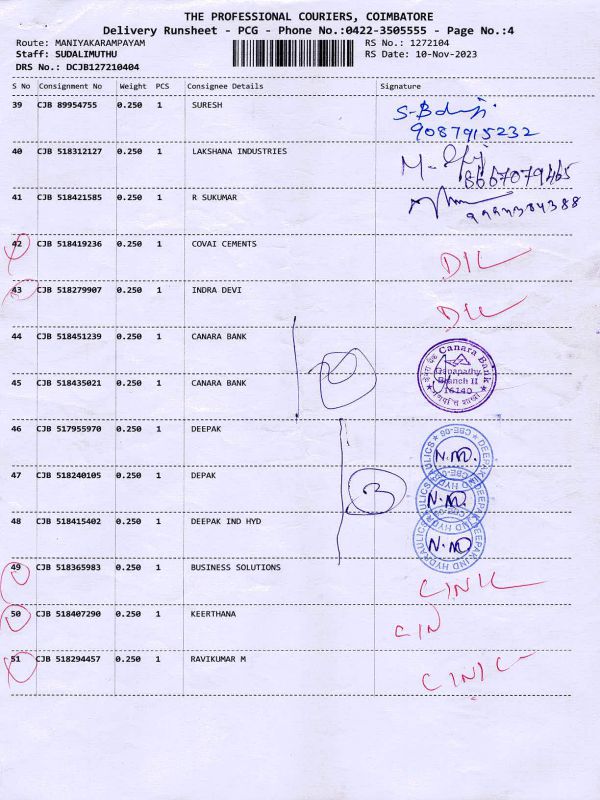 THE PROFESSIONAL COURIERS, COIMBATORE
Delivery Runsheet - PCG - Phone No.:0422-3505555 - Page No.:4
Route: MANIYAKARAMPAYAM RS No.: 1272104
Staff: SUDALIMUTHU RS Date: 10-Nov-2023
DRS No.: DCJB127210404
S No Consignment No Weight PCS Consignee Details Signature
39 CJB 89954755 0.250 1 SURESH
9087915232
40 CJB 518312127 0.250 1 LAKSHANA INDUSTRIES
8667079465
41 CJB 518421585 0.250 1 R SUKUMAR
42 CJB 518419236 0.250 1 COVAI CEMENTS DIL
43 CJB 518279907 0.250 1 INDRA DEVI DIL
44 CJB 518451239 0.250 1 CANARA BANK
Canara Bank
Ganapathy
Branch II
16140
45 CJB 518435021 0.250 1 CANARA BANK
46 CJB 517955970 0.250 1 DEEPAK N.M.
47 CJB 518240105 0.250 1 DEPAK 3 N.M.
48 CJB 518415402 0.250 1 DEEPAK IND HYD N.M
DEEPAK IND HYDRAULICS
CBE-06
49 CJB 518365983 0.250 1 BUSINESS SOLUTIONS CINIL
50 CJB 518407290 0.250 1 KEERTHANA CIN
51 CJB 518294457 0.250 1 RAVIKUMAR M CINIL